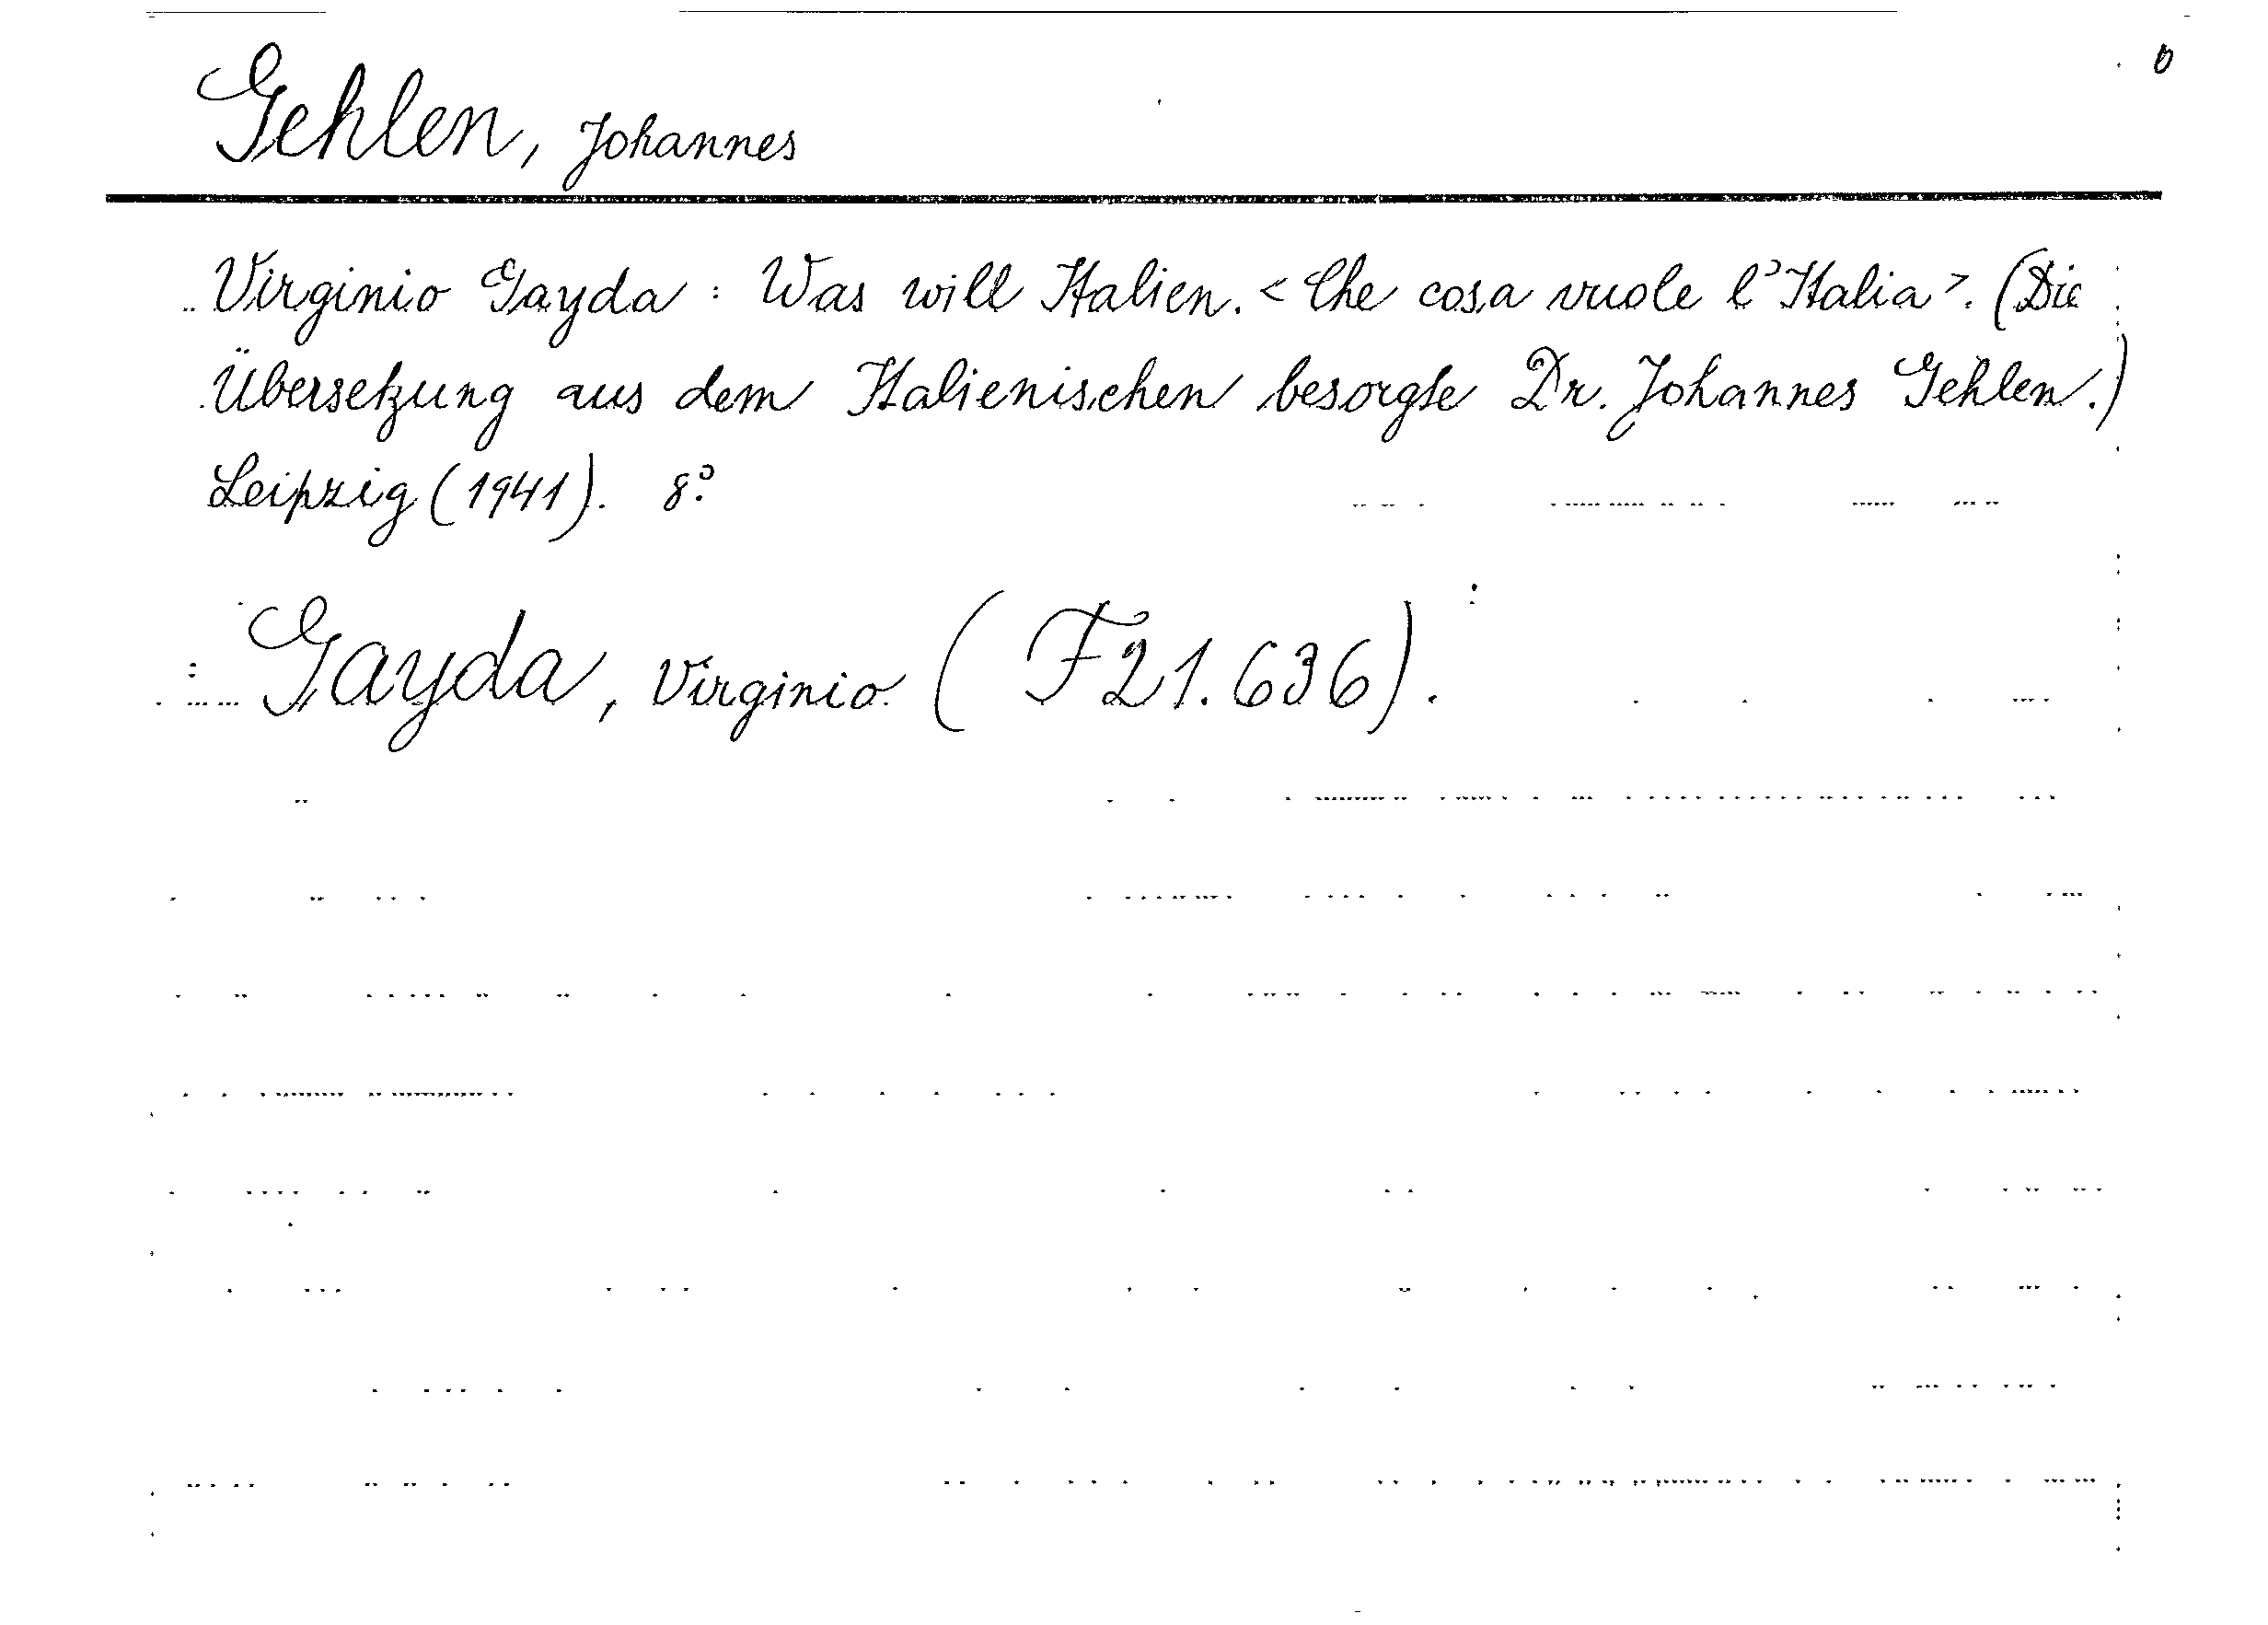 Gehlen, Johannes
Virginio Gayda : Was will Italien. < Che cosa vuole l'Italia >. (Die
Übersetzung aus dem Italienischen besorgte Dr. Johannes Gehlen.)
Leipzig (1941). 8°
Gayda, Virginio (F21.636).